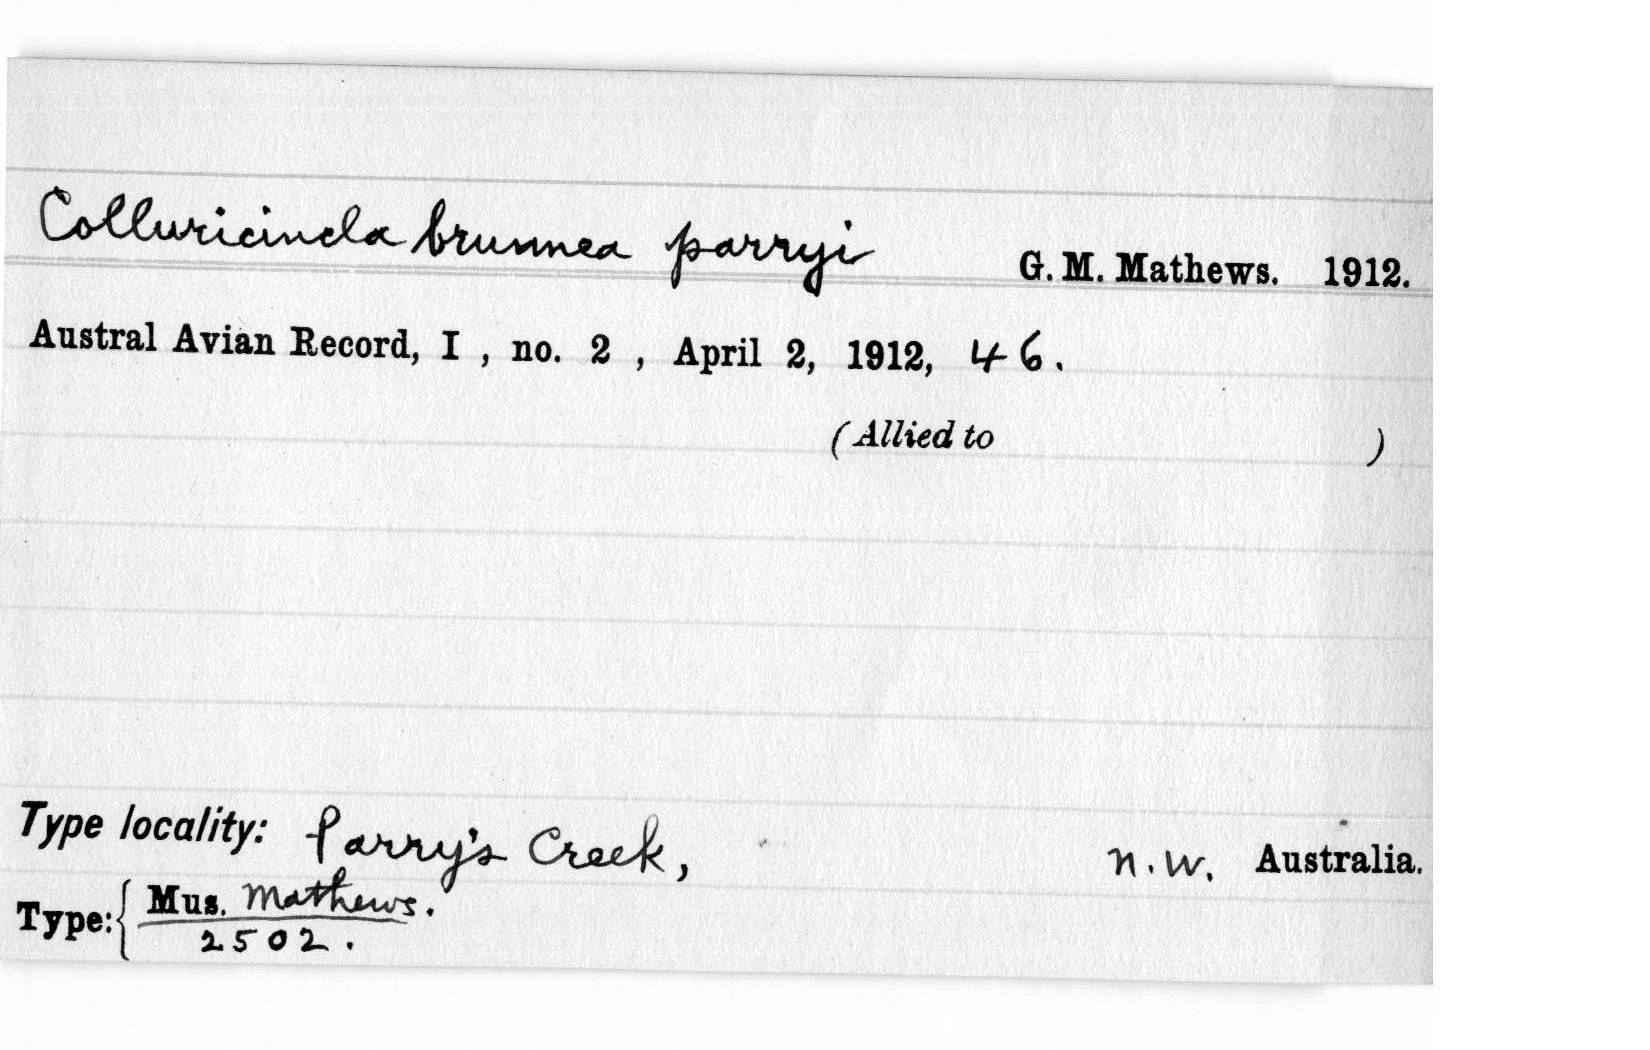 Colluricincla brunnea parryi G. M. Mathews. 1912.
Austral Avian Record, I , no. 2 , April 2, 1912, 46.
(Allied to )
Type locality: Parry's Creek, N.W. Australia.
Type: { Mus. Mathews.
2502.